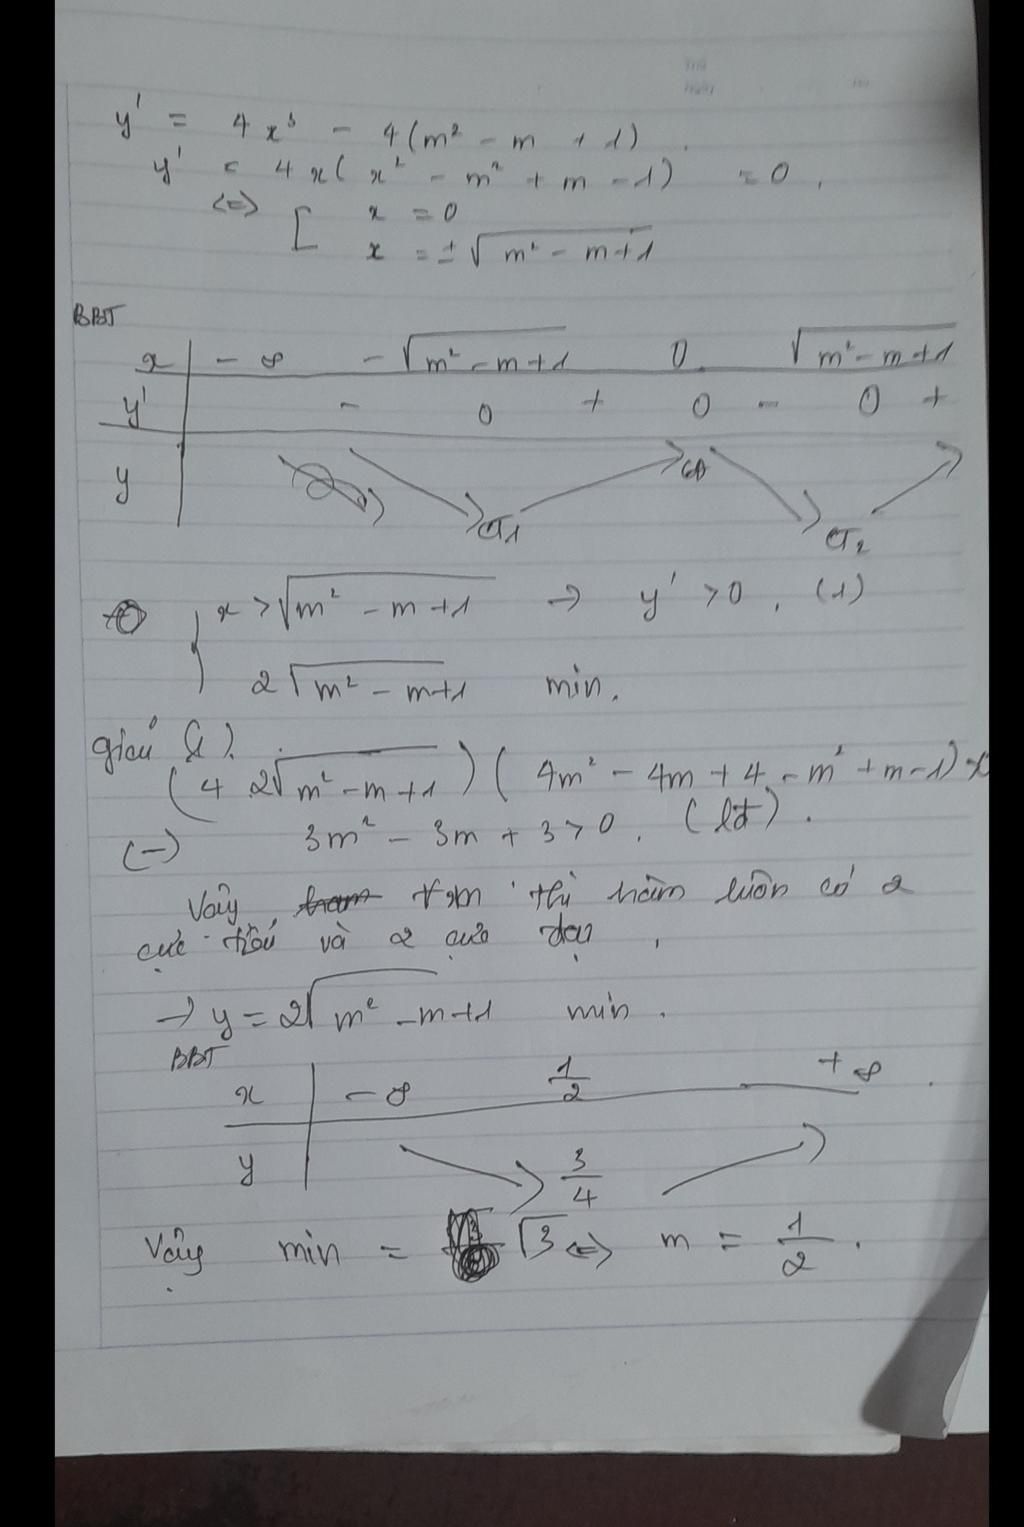 y' = 4x³ - 4(m² - m + 1)
y' = 4x(x² - m² + m - 1) = 0,
<=> [ x = 0
x = ±√(m² - m + 1)
BBT
x | -∞ -√(m² - m + 1) 0 √(m² - m + 1)
y' | - 0 + 0 - 0 +
y | CT1 CĐ CT2
{ x > √(m² - m + 1) → y' > 0, (1)
2√(m² - m + 1) min.
giải (1).
(4 2√(m² - m + 1))(4m² - 4m + 4 - m² + m - 1)
(-) 3m² - 3m + 3 > 0, (lđ).
Vậy ∀m thì hàm luôn có 2
cực tiểu và 2 cực đại,
→ y = 2√(m² - m + 1) min.
BBT
x | -∞ 1/2 +∞
y | 3/4
Vậy min = √3 <=> m = 1/2.